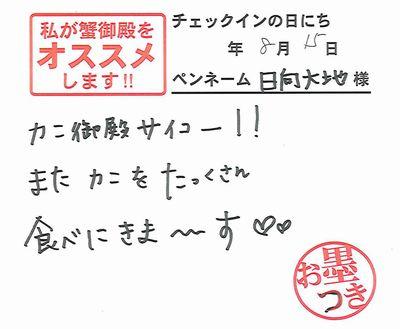 私が蟹御殿を
オススメ
します!!
チェックインの日にち
年 8月 15日
ペンネーム 日向大地 様
カニ御殿サイコー!!
また カニを たっくさん
食べに きま〜〜す♡♡
お墨つき